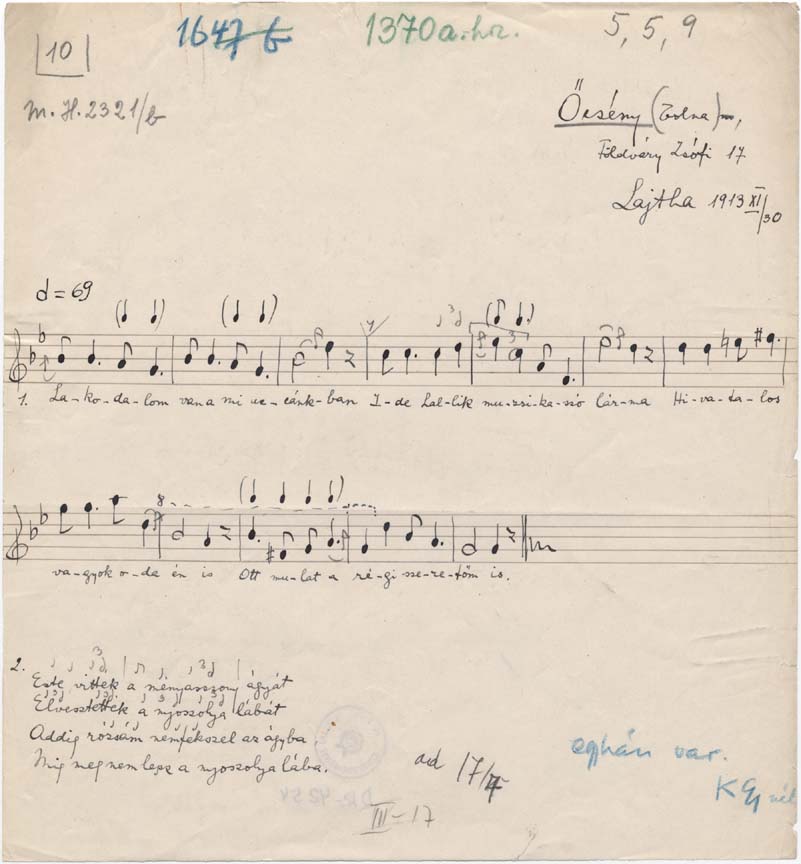 10
1647 b
1370a.hr.
5, 5, 9
M.H.2321/b
Őcsény (Tolna)
Földváry Zsófi 17
Lajtha 1913 XI/30
d = 69
1. La-ko-da-lom van a mi uc-cánk-ban I-de hal-lik mu-zsi-ka-szó lár-ma Hi-va-ta-los
va-gyok o-da én is Ott mu-lat a ré-gi sze-re-tőm is.
2.
Este vittek a menyasszony ágyát
Elvesztették a nyoszolya lábát
Addig rózsám nem fekszel az ágyba
Míg meg nem lesz a nyoszolya lába.
ad 17/7
III-17
var.